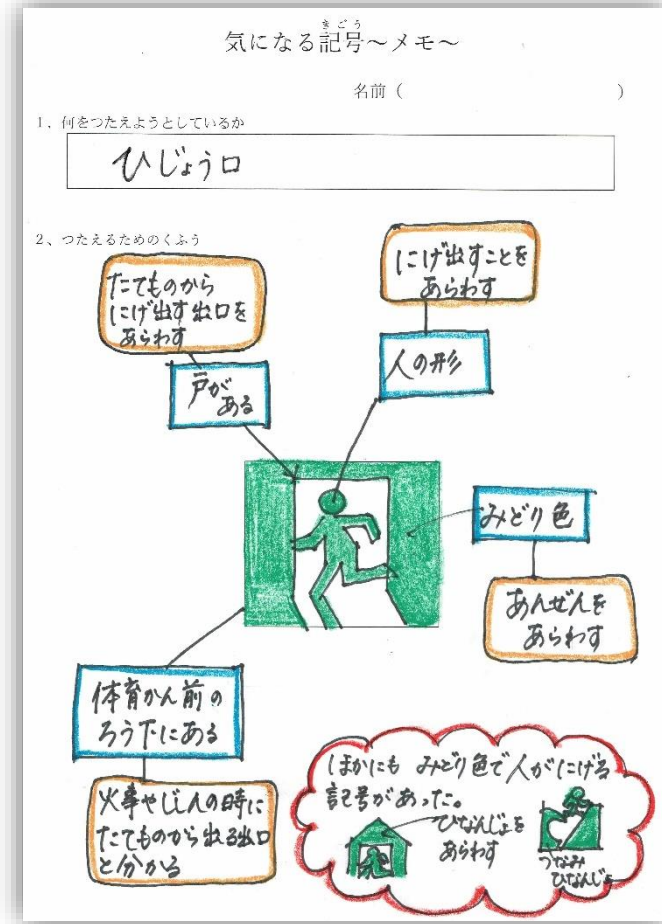 きごう
気になる記号～メモ～
名前（　　　　　　）
1、何をつたえようとしているか
ひじょう口
2、つたえるためのくふう
たてものから
にげ出す出口を
あらわす
戸が
ある
にげ出すことを
あらわす
人の形
みどり色
あんぜんを
あらわす
体育かん前の
ろう下にある
火事やじしんの時に
たてものから出る出口
と分かる
ほかにも みどり色で人がにげる
記号があった。
ひなんじょを
あらわす
つなみ
ひなんじょ